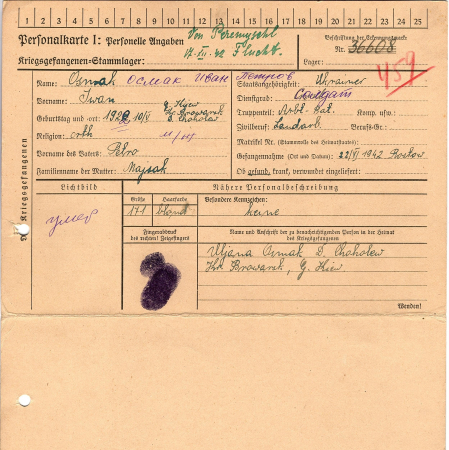 1 2 3 4 5 6 7 8 9 10 11 12 13 14 15 16 17 18 19 20 21 22 23 24 25
Personalkarte I: Personelle Angaben
Von Przemysl
17. XII. 42 Flucht.
Beschriftung der Erkennungsmarke
Nr. 36608
Kriegsgefangenen-Stammlager:
Lager:
459
Des Kriegsgefangenen
Name: Osmak Осмак Иван Петров
Staatsangehörigkeit: Ukrainer
Vorname: Iwan
Dienstgrad: Солдат
Geburtstag und -ort:
G. Kiew
D. Choholew
Truppenteil: Komp. usw.:
Religion: orth
Zivilberuf: Landarb. Berufs-Gr.:
Matrikel Nr. (Stammrolle des Heimatstaates):
Vorname des Vaters: Petro
Gefangennahme (Ort und Datum): 22/VI 1942 Rostow
Familienname der Mutter: Majsak
Ob gesund, krank, verwundet eingeliefert:
Lichtbild
Nähere Personalbeschreibung
Größe Haarfarbe Besondere Kennzeichen:
171 blond keine
умер
Fingerabdruck
des rechten! Zeigefingers
Name und Anschrift der zu benachrichtigenden Person in der Heimat
des Kriegsgefangenen
Uljana Osmak D. Choholew
Browarsk, G. Kiew.
Wenden!